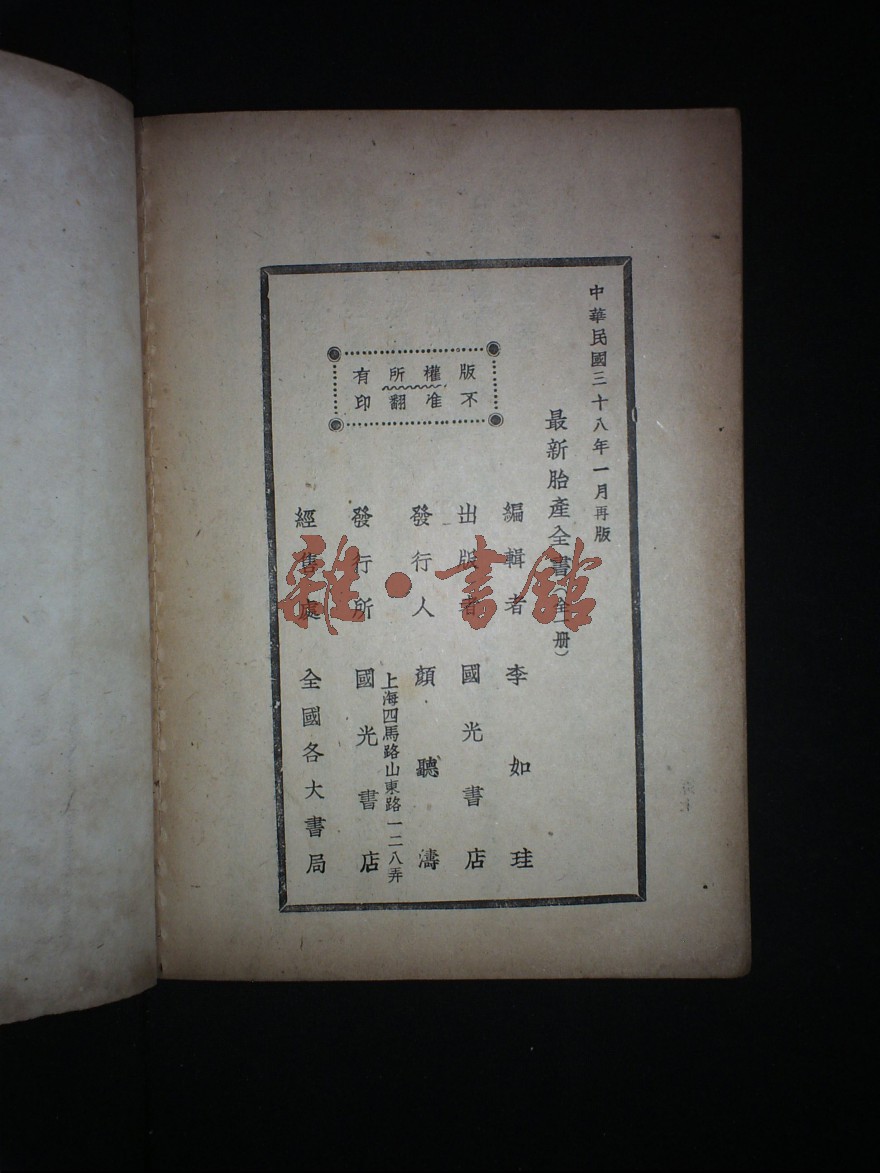 中華民國三十八年一月再版
最新胎產全書（全一册）
編輯者 李如珪
出版者 國光書店
發行人 顏聽濤
上海四馬路山東路一二八弄
發行所 國光書店
經售處 全國各大書局
版權所有
不准翻印
雜·書館